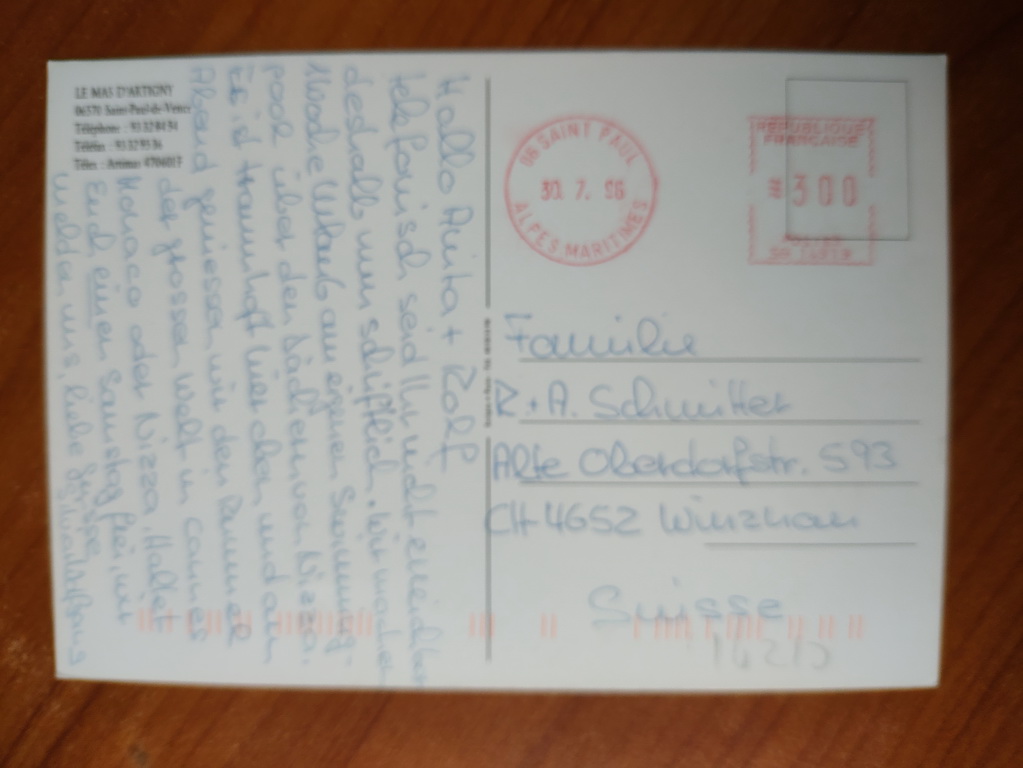 LE MAS D'ARTIGNY
06570 Saint-Paul-de-Vence
Téléphone : 93 32 84 54
Hallo Anita + Rolf
telefonisch seid Ihr nicht erreichbar
deshalb nun schriftlich. Wir machen
1 Woche Urlaub am eigenen Swimming-
pool über den Dächern von Nizza.
Es ist traumhaft hier oben und am
Abend geniessen wir den Rummel
der grossen Welt in Cannes
Monaco oder Nizza. Haltet
Euch einen Samstag frei, wir
melden uns, liebe Grüsse
06 SAINT PAUL
30. 7. 96
ALPES-MARITIMES
REPUBLIQUE
FRANCAISE
300
Familie
R + A. Schmitter
Alte Oberdorfstr. 593
CH-4652 Winznau
Suisse